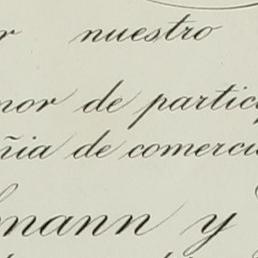 r nuestro
nor de partic
ñia de comerci
mann y